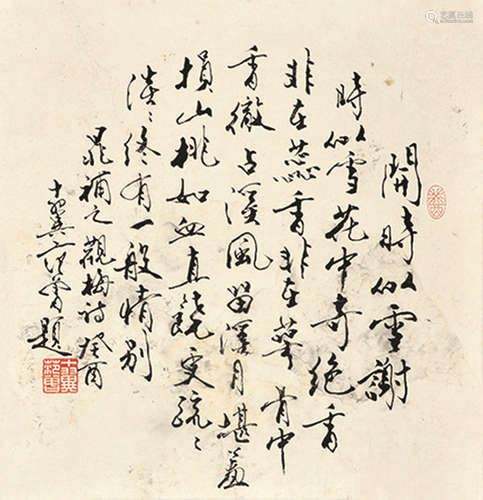 開時似雪謝
時似雪花中奇絕香
非在蕊香非在萼骨中
香徹占溪風留溪月堪羞
損山桃如血直饒更疏〻
淡〻終有一般情別
晁補之觀梅詩癸酉
十翼范曾題
十翼
范曾